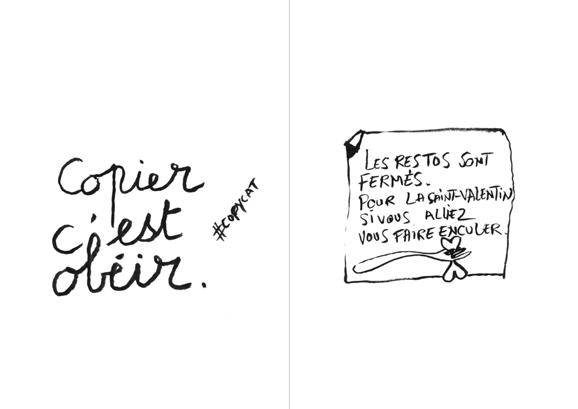 Copier
c'est
obéir.
#COPYCAT
LES RESTOS SONT
FERMÉS.
POUR LA SAINT-VALENTIN
SI VOUS ALLIEZ
VOUS FAIRE ENCULER.